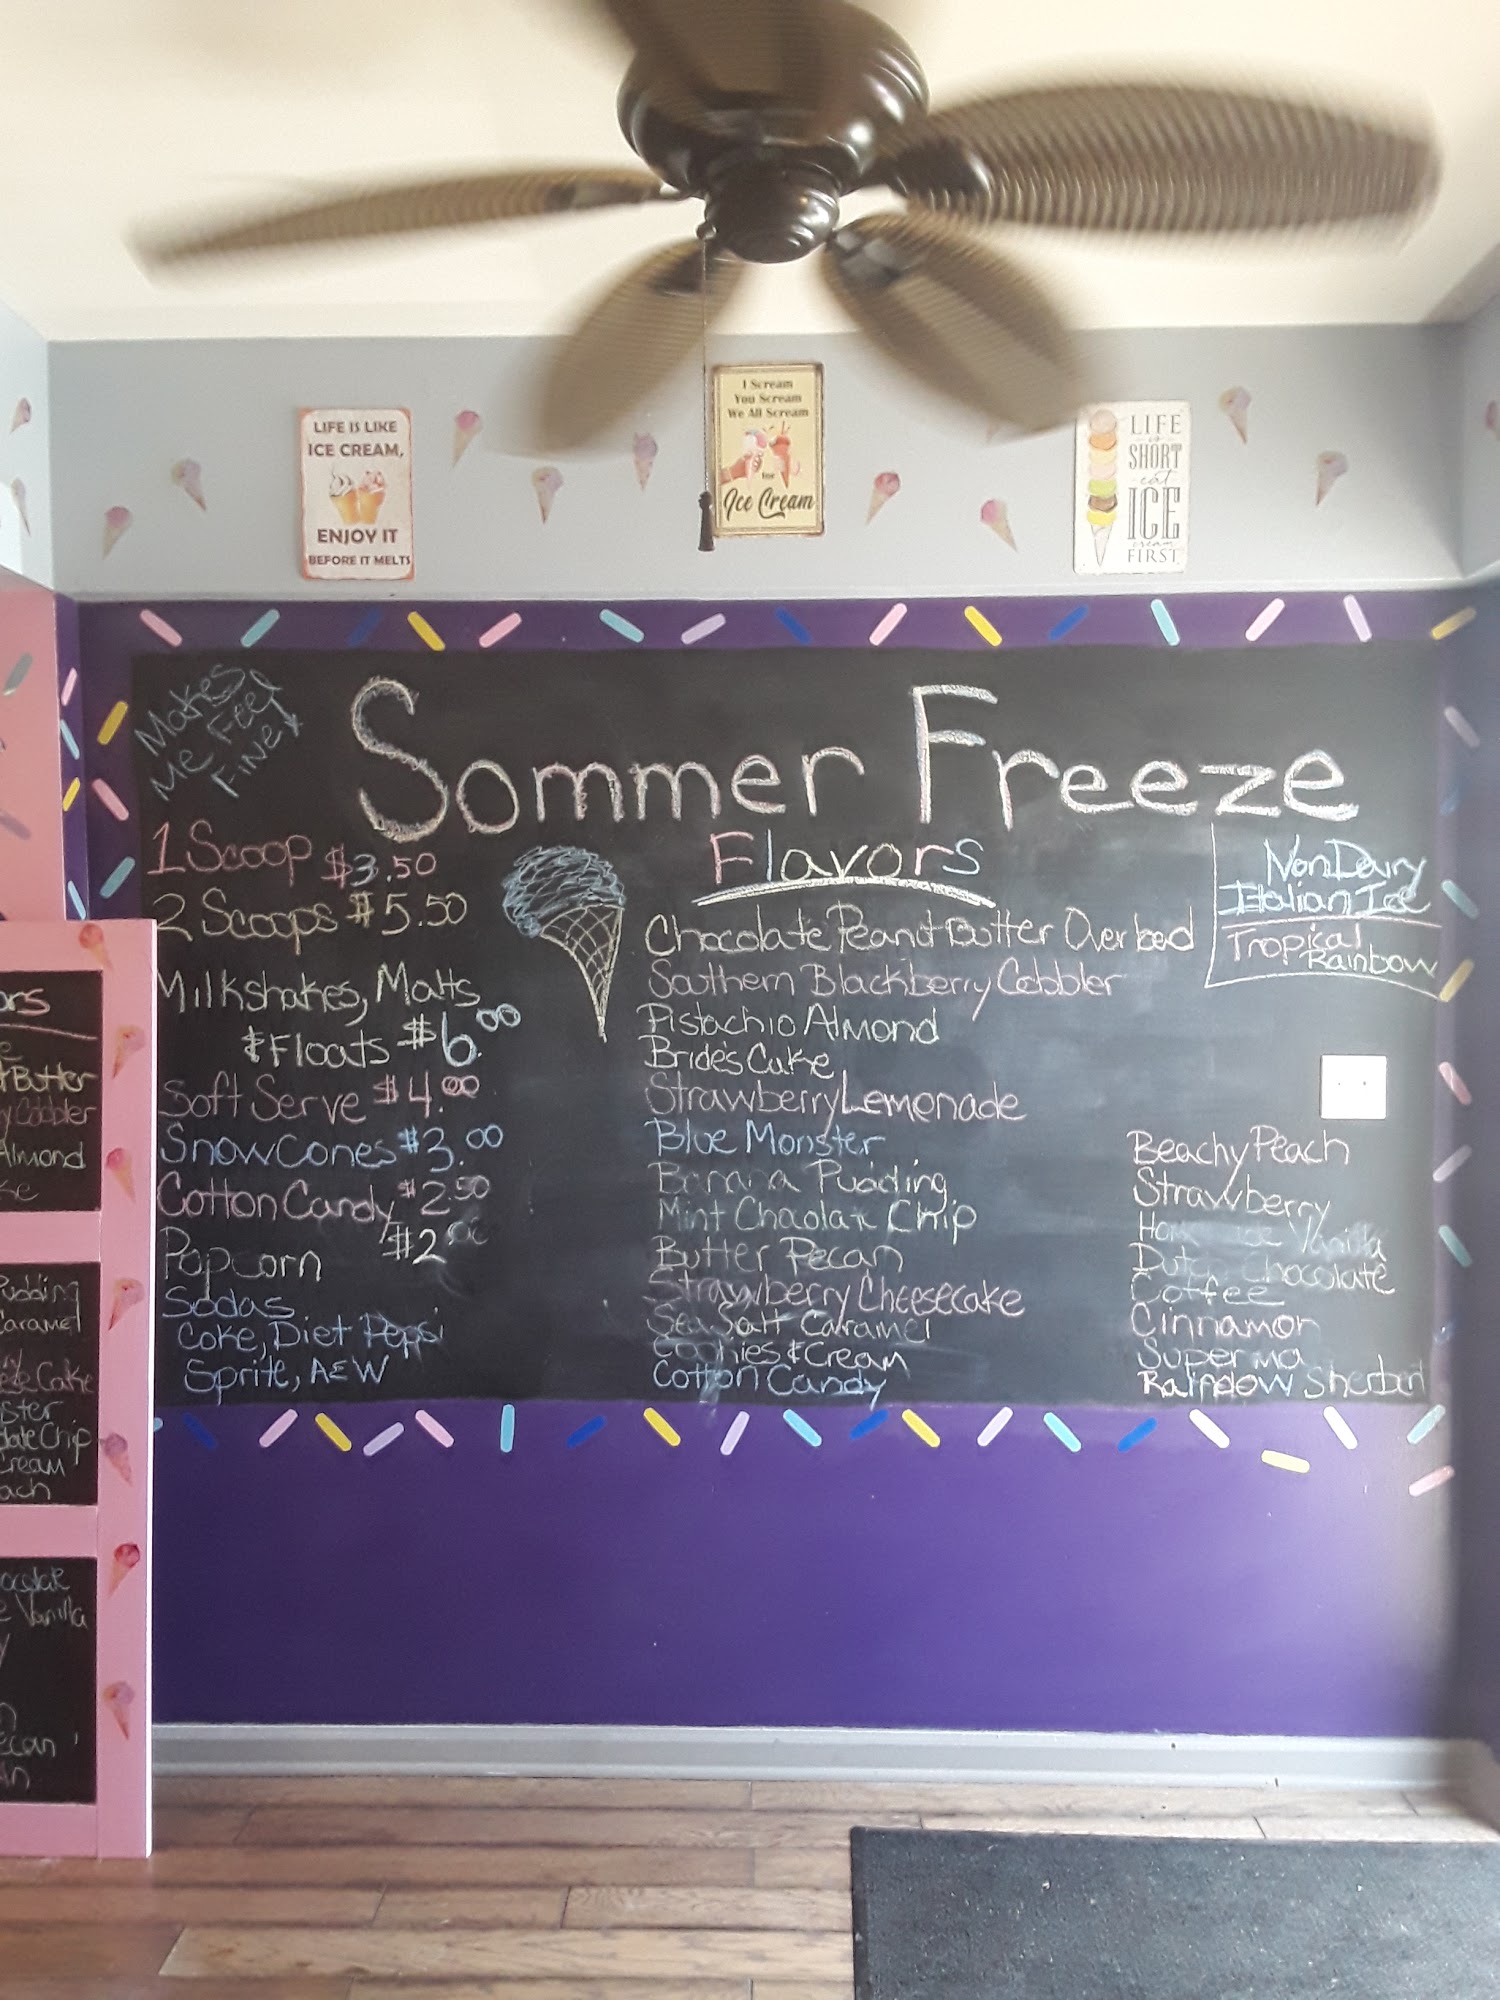 LIFE IS LIKE
ICE CREAM,
ENJOY IT
BEFORE IT MELTS
I Scream
You Scream
We All Scream
for
Ice Cream
LIFE
is
SHORT
eat
ICE
cream
FIRST
Makes
Me Feel
Fine!
Sommer Freeze
1 Scoop $3.50
2 Scoops $5.50
Milkshakes, Malts
& Floats $6.00
Soft Serve $4.00
Snow Cones $3.00
Cotton Candy $2.50
Popcorn $2.00
Sodas
Coke, Diet Pepsi
Sprite, A&W
Flavors
Chocolate Peanut Butter Overload
Southern Blackberry Cobbler
Pistachio Almond
Bride's Cake
Strawberry Lemonade
Blue Monster
Banana Pudding
Mint Chocolate Chip
Butter Pecan
Strawberry Cheesecake
Sea Salt Caramel
Cookies & Cream
Cotton Candy
Non Dairy
Italian Ice
Tropical
Rainbow
Beachy Peach
Strawberry
Vanilla
Dutch Chocolate
Coffee
Cinnamon
Superma
Rainbow Sherbert
Butter
Cobbler
Almond
Pudding
Caramel
Cake
Chip
Cream
Vanilla